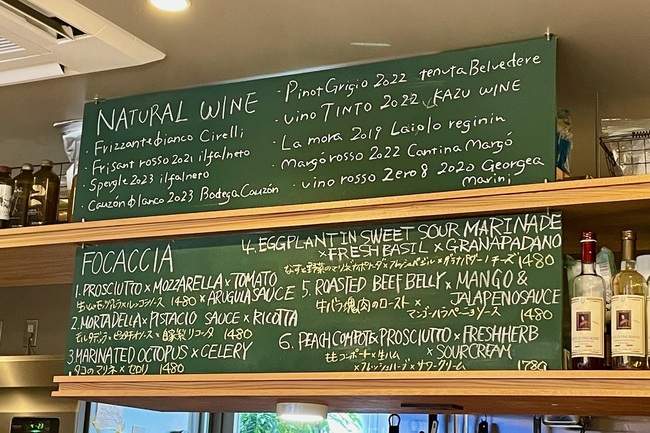 NATURAL WINE
・Frizzante bianco Cirelli
・Frisant rosso 2021 ilfalneto
・Spergle 2023 ilfalneto
・Cauzón blanco 2023 Bodega Cauzón
・Pinot Grigio 2022 tenuta Belvedere
・vino TINTO 2022 KAZU WINE
・La mora 2019 Laiolo reginin
・Margó rosso 2022 Cantina Margó
・vino rosso Zero 8 2020 Georgea
Marini
FOCACCIA
1. PROSCIUTTO × MOZZARELLA × TOMATO
× ARUGULA SAUCE
生ハム×モッツァレラ×ルッコラソース 1480
2. MORTADELLA × PISTACIO SAUCE × RICOTTA
モルタデッラ・ピスタチオソース・自家製リコッタ 1480
3. MARINATED OCTOPUS × CELERY
タコのマリネ × セロリ 1480
4. EGGPLANT IN SWEET SOUR MARINADE
× FRESH BASIL × GRANAPADANO
なすと野菜のマリネ カポナータ×フレッシュバジル×グラナパダーノチーズ 1480
5. ROASTED BEEF BELLY × MANGO &
JALAPENO SAUCE
牛バラ塊肉のロースト × マンゴーハラペーニョソース 1480
6. PEACH COMPOTE & PROSCIUTTO × FRESH HERB
× SOUR CREAM
ももコンポート × 生ハム
× フレッシュハーブ × サワークリーム 1780